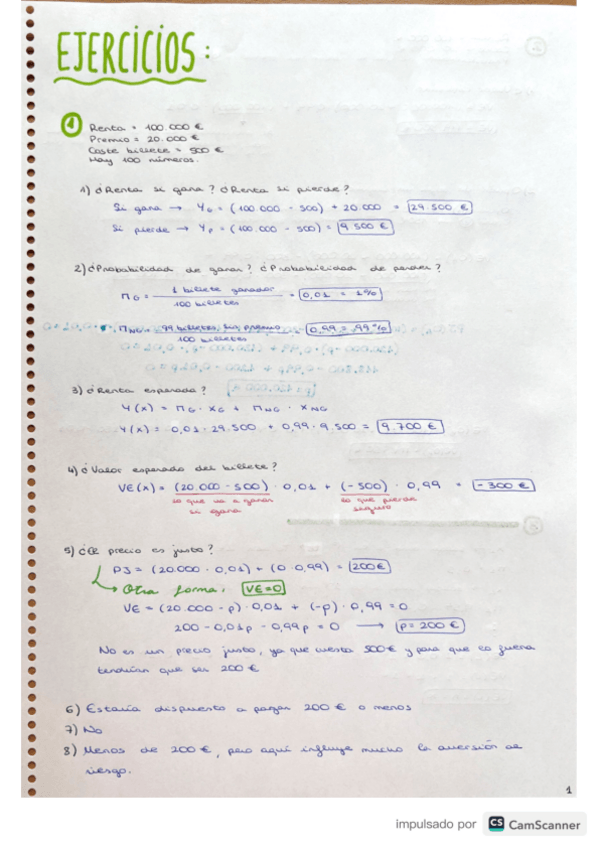 EJERCICIOS:
1
Renta = 100.000 €
Premio = 20.000 €
Coste billete = 500 €
Hay 100 números.
1) ¿Renta si gana? ¿Renta si pierde?
Si gana → Y_G = (100.000 - 500) + 20.000 = 29.500 €
Si pierde → Y_P = (100.000 - 500) = 9.500 €
2) ¿Probabilidad de ganar? ¿Probabilidad de perder?
Π_G = 1 billete ganador / 100 billetes = 0,01 = 1%
Π_NG = 99 billetes sin premio / 100 billetes = 0,99 = 99%
3) ¿Renta esperada?
Y(x) = Π_G · X_G + Π_NG · X_NG
Y(x) = 0,01 · 29.500 + 0,99 · 9.500 = 9.700 €
4) ¿Valor esperado del billete?
VE(x) = (20.000 - 500) · 0,01 + (-500) · 0,99 = -300 €
lo que va a ganar lo que pierde
si gana seguro
5) ¿El precio es justo?
PJ = (20.000 · 0,01) + (0 · 0,99) = 200 €
→ Otra forma: VE=0
VE = (20.000 - p) · 0,01 + (-p) · 0,99 = 0
200 - 0,01p - 0,99p = 0 → p = 200 €
No es un precio justo, ya que cuesta 500 € y para que lo fuera
tendrían que ser 200 €
6) Estaría dispuesto a pagar 200 € o menos
7) No
8) Menos de 200 €, pero aquí influye mucho la aversión al
riesgo.
1
impulsado por CS CamScanner